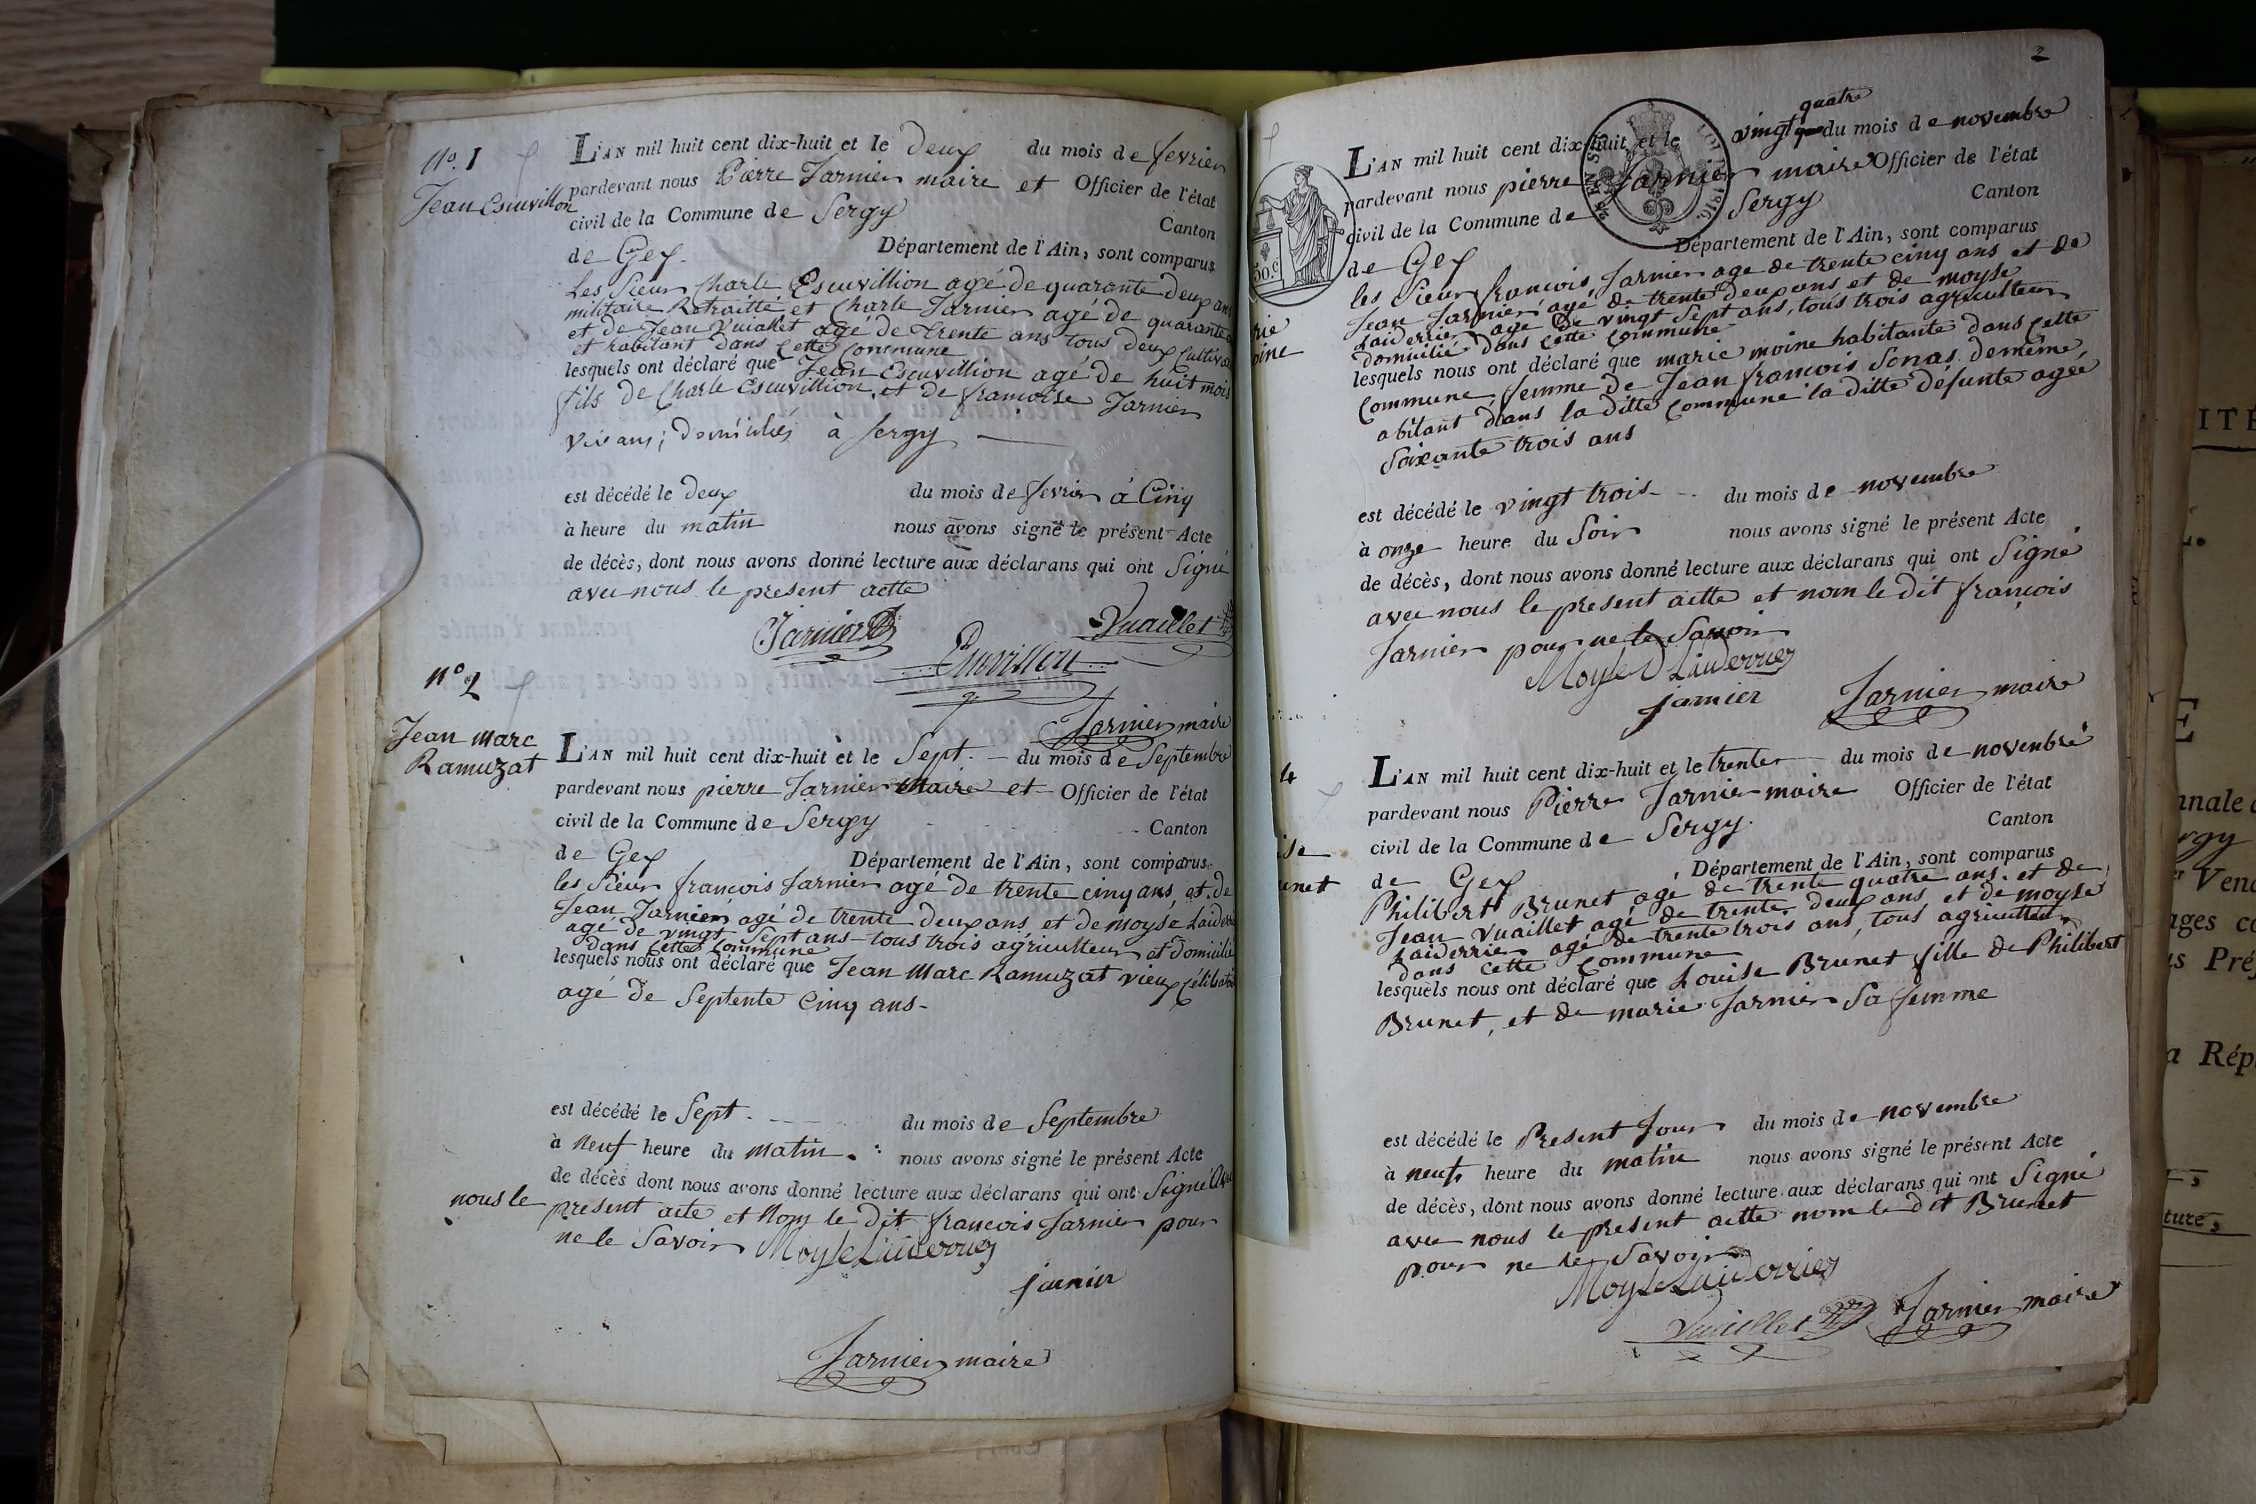 N.o 1
Jean Escuvillon
L'AN mil huit cent dix-huit et le deux du mois de fevrier
pardevant nous Pierre Jarnier maire et Officier de l'état
civil de la Commune de Sergy Canton
de Gex. Département de l'Ain, sont comparus
Les Sieur Charle Escuvillion agé de quarante deux ans
militaire Retraitté et Charle Jarnier agé de quarante
et de Jean Vuiallet agé de Trente ans tous deux Cultiva
et habitant dans Cette Commune
lesquels ont déclaré que Jean Escuvillion agé de huit mois
fils de Charle Escuvillion et de framoise Jarnier
vivans; domiciliés à Sergy
est décédé le deux du mois de fevrier à Cinq
à heure du matin nous avons signé le présent Acte
de décès, dont nous avons donné lecture aux déclarans qui ont Signé
avec nous le present actte
Jarnier
Vuaillet
Escuvillon
Jarnier maire
n.o 2
Jean Marc
Ramuzat
L'AN mil huit cent dix-huit et le Sept. du mois de Septembre
pardevant nous pierre Jarnier maire et Officier de l'état
civil de la Commune de Sergy Canton
de Gex Département de l'Ain, sont comparus
les Sieur francois Jarnier agé de trente cinq ans, et de
Jean Jarnier agé de trente deux ans et de moyse Laiderr
agé de vingt Sept ans tous trois agriculteur et domicilié
dans Cette Commune
lesquels nous ont déclaré que Jean Marc Ramuzat vieux Célibat
agé de Septente Cinq ans-
est décédé le Sept. du mois de Septembre
à Neuf heure du matin. nous avons signé le présent Acte
de décès dont nous avons donné lecture aux déclarans qui ont Signé Avec
nous le present acte et Nom le dit francois Jarnier pour
ne le Savoir Moyse Laiderrier
jarnier
Jarnier maire
2
quatre
L'AN mil huit cent dix-huit et le vingt du mois de novembre
pardevant nous pierre Jarnier maire Officier de l'état
civil de la Commune de Sergy Canton
de Gex Département de l'Ain, sont comparus
les Sieur francois Jarnier age de trente cinq ans et de
Jean Jarnier agé de trente deux ans et de moyse
Laiderrier age de vingt Sept ans, tous trois agriculteur
domicilié dans cette Commune
lesquels nous ont déclaré que marie moine habitante dans Cette
Commune, femme de Jean francois Sonas demême,
abitant dans la ditte Commune la ditte défunte agée
Soixante trois ans
est décédé le vingt trois du mois de novembre
à onze heure du Soir nous avons signé le présent Acte
de décès, dont nous avons donné lecture aux déclarans qui ont Signé
avec nous le present actte et nom le dit françois
Jarnier pour ne le Savoir
Moyse Laiderrier
jarnier
Jarnier maire
rie
oine
50.C
4
ise
unet
L'AN mil huit cent dix-huit et le trente du mois de novembre
pardevant nous Pierre Jarnier maire Officier de l'état
civil de la Commune de Sergy. Canton
de Gex Département de l'Ain, sont comparus
Philibert Brunet agé de trente quatre ans. et de
Jean Vuaillet agé de trente deux ans, et de moyse
Laiderrier agé de trente trois ans, tous agriculteur
dans cette Commune
lesquels nous ont déclaré que Louise Brunet fille de Philibert
Brunet, et de marie Jarnier Sa femme
est décédé le Present Jour du mois de novembre
à neuf heure du matin nous avons signé le présent Acte
de décès, dont nous avons donné lecture aux déclarans qui ont Signé
avec nous le present actte nom le dit Brunet
pour ne le Savoir
Moyse Laiderrier
Vuaillet
Jarnier maire
ITÉ
nnale
rgy
Vend
ages
Préf
a Rép
ture,